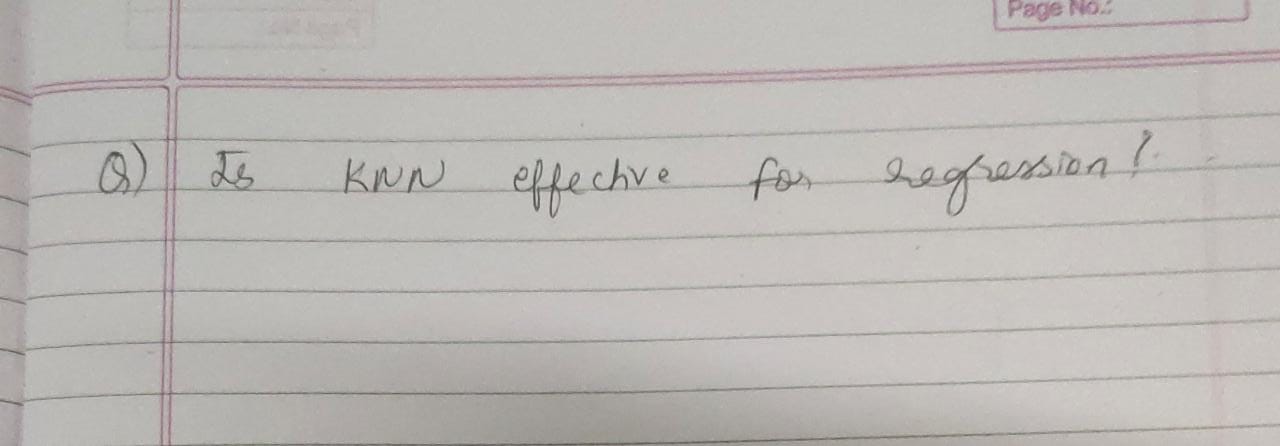 Page No.:
Q) Is KNN effective for regression?